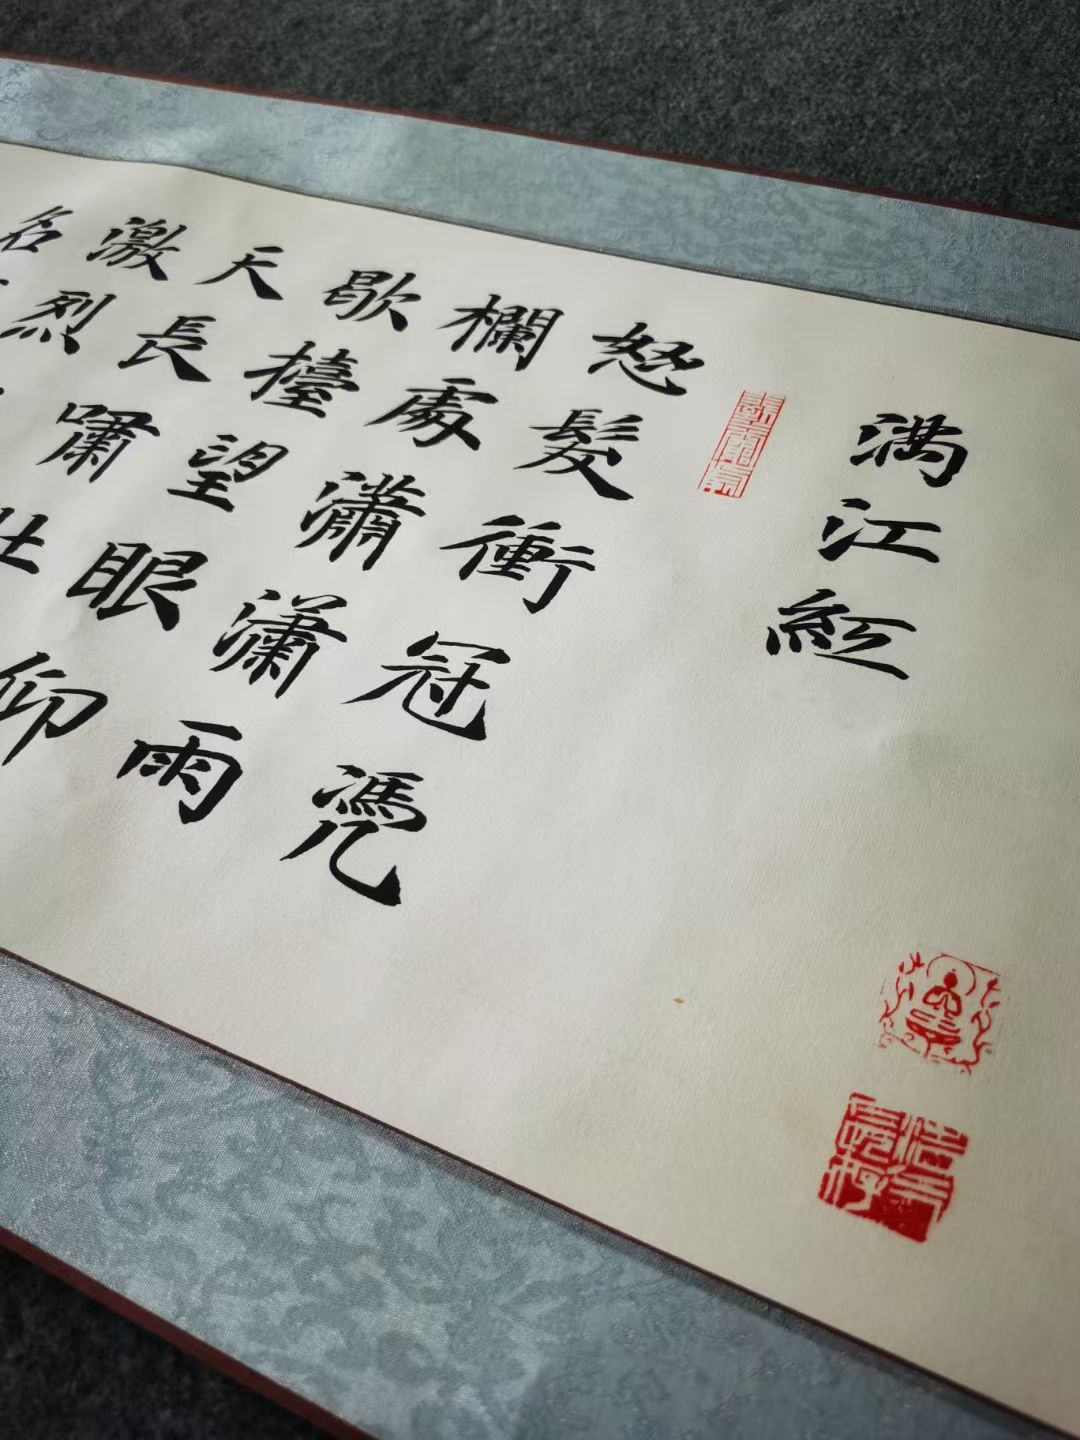 满江紅
怒髮衝冠凴
欄處瀟瀟雨
歇擡望眼仰
天長嘯壯
激烈
名